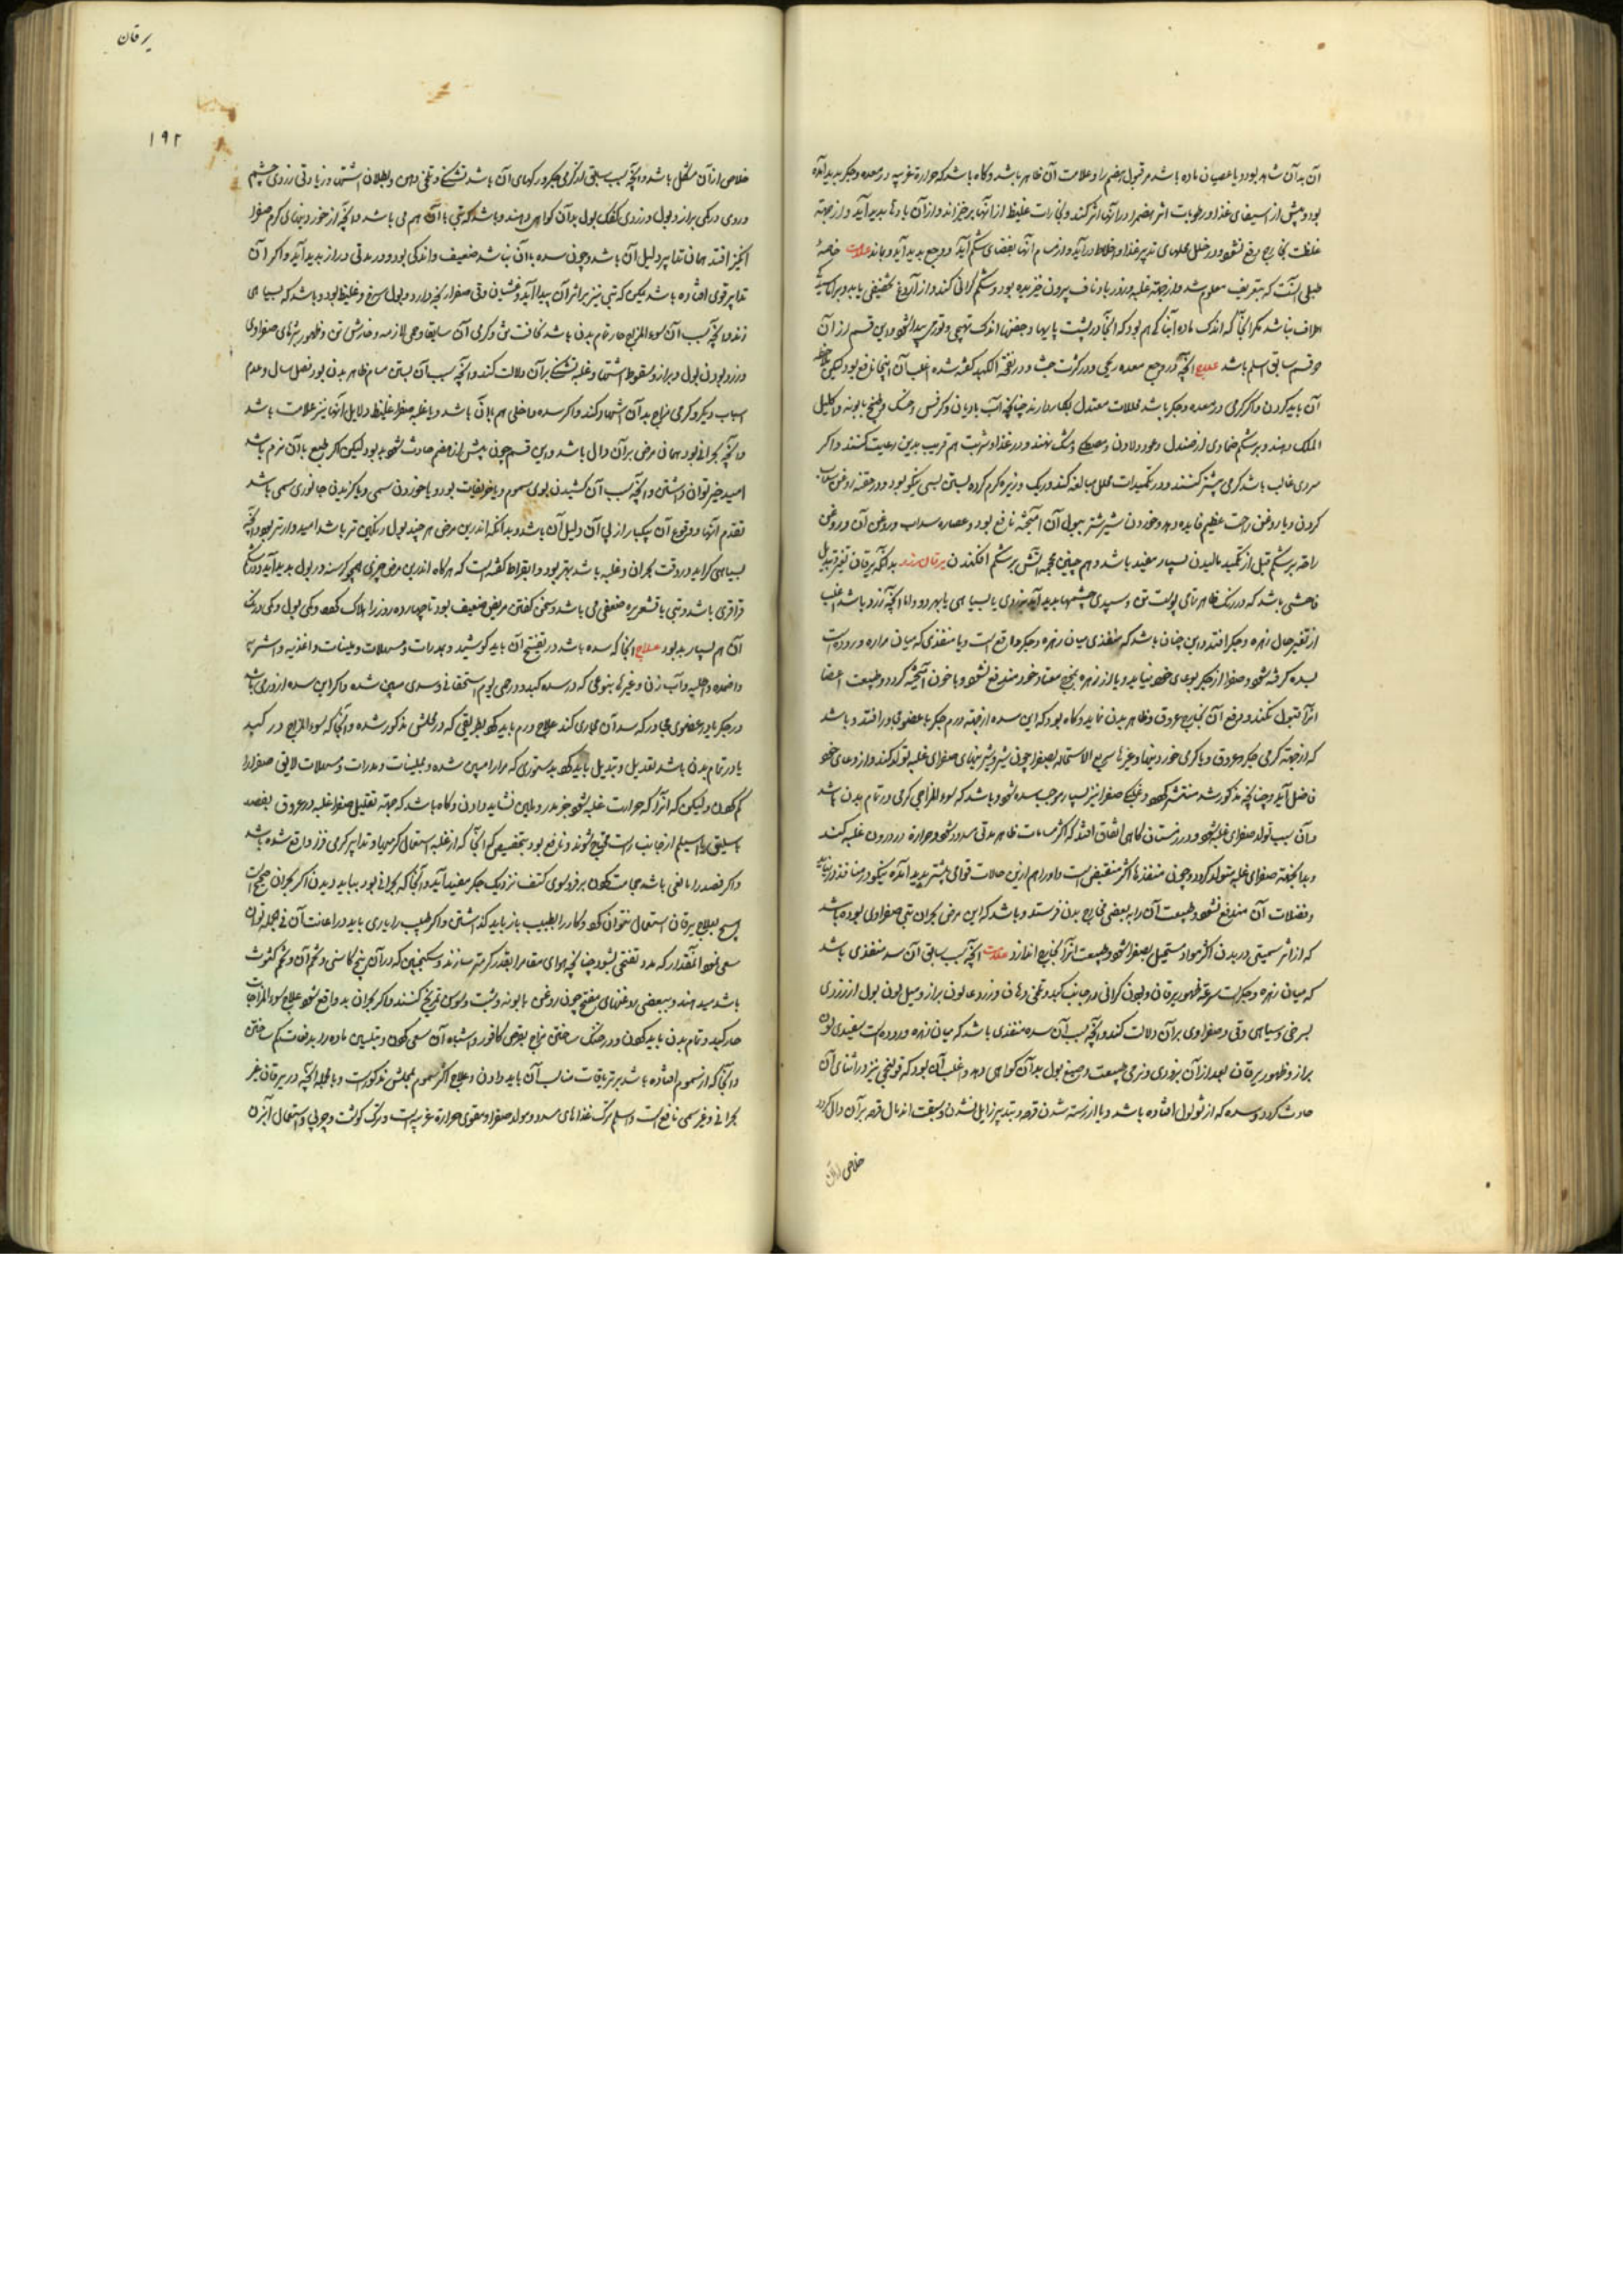 آن بدآن شاهد بود و یا عصیان ماده باشد مر قبول هضم را و علامت آن ظاهر باشد و کاه باشد که حرارة غریبه در معده و جکر بدید آمده
بود و پیش از استیفای غذا و رطوبات اثر هضم را در آنها اثر کند و بخارات غلیظ از آنها برخیزاند و از آن بادها بدید آید و از جهة
غلظت بخارج مندفع نشود و در خلل محلهای تدبیر غذا و اخلاط در آید و از مسام آنها بفضای شکم آید و وجع بدید آید و بماند علامت خاصهٔ
طبلی آنست که بتعریف معلوم شد و از جهة غلبه و زور باد ناف بیرون خزیده بود و شکم کرانی کند و از آروغ تخفیفی یابد
اطراف نباشد مکر آنجا که اندک ماده آبناک هم بود که آنجا در پشت پایها و جفنها اندک تهبجی و تورمی پیدا شود و این قسم از آن
دو قسم سابق اسلم باشد علاج آنچه در وجع معده ریحی و در کثرت جشا و در نفخة الکبد کفته شده اغلب آن اینجا نافع بود لیکن
آن باید کردن و اکر کرمی در معده و جکر باشد محللات معتدل بکار دارند چنانکه آب بادیان و کرفس و خسک و طبیخ بابونه و اکلیل
الملک دهند و بر شکم ضمادی از صندل و عود و لادن و مصطکی و مشک نهند و در غذا و شربت هم قریب بدین رعایت کنند و اکر
سردی غالب باشد کرمی بیشتر کنند و در تکمیدات محلل مبالغه کنند و ریک و زیره کرم کرده بستن بسی نیکو بود و در حقنه روغن سداب
کردن و یا روغن راحت عظیم فایده دهد و خوردن شیر شتر ببول آن آمیخته نافع بود و عصاره سداب و روغن آن و روغن
راحه بر شکم قبل از تکمید مالیدن بسیار مفید باشد و هم چنین محجمه آتش بر شکم افکندن یرقان زرد بدانکه یرقان تغیر و تبدیل
فاحشی باشد که در رنک ظاهرتای پوست تن و سپیدی چشمها بدید آید بزردی یا بسیاهی یا بهر دو و اما آنچه زرد باشد اغلب
از تغیر حال زهره و جکر افتد و این چنان باشد که منفذی میان زهره و جکر واقع است و یا منفذی که میان مراره و روده است
بسده کرفته شود و صفرا از جکر بوعای خود نیاید و یا از زهره بنهج معتاد خود مندفع نشود و با خون آمیخته کردد و طبیعت اعضا
آنرا قبول نکند و دفع آن بخارج عروق و ظاهر بدن نماید و کاه بود که این سده از جهة ورم جکر یا عضو مجاور افتد و باشد
که از جهة کرمی جکر و عروق و یا کرمی خوردنیها و غیرها سریع الاستحاله بصفرا چون شیر و شیرینیهای صفرای غلبه تولد کند و از وعای خود
فاضل آید و چنانکه مذکور شد منتشر کردد و غلظ صفرا نیز بسیار موجب سده شود و باشد که سوء المزاجی کرمی در تمام بدن باشد
و آن سبب تولد صفرای غلبه شود و در زمستان کاهی اتفاق افتد که اکثر مسامات ظاهر مدتی مسدود شود و حرارة در درون غلبه کند
و بدآنجهت صفرای غلبه متولد کردد و چون منفذها اکثر منقبض است و او را هم ازین حالات قوامی بیشتر بدید آمده نیکو در منافذ در نیاید
و فضلات آن مندفع نشود و طبیعت آن را به بعضی بخارج بدن فرستد و باشد که این مرض بحران تبی صفراوی بوده باشد
که از اثر سمیتی در بدن اکثر مواد مستحیل بصفرا شود و طبیعت آنرا بخارج اندازد علامت آنچه سبب سابق آن سده منفذی باشد
که میان زهره و جکر است سرعة ظهور یرقان و بودن کرانی در جانب کبد و تلخی دهان و زردی لون براز و میل لون بول از زردی
بسرخی و سیاهی و قی صفراوی بر آن دلالت کند و آنچه سبب آن سده منفذی باشد که میان زهره و روده است سفیدی لون
براز و ظهور یرقان بعد از آن بزودی و نرمی طبیعت و صبغ بول بدآن کواهی دهد و اغلب آن بود که قولنجی نیز در اثنای آن
حادث کردد و سده که از ثولول افتاده باشد و یا از رسته شدن قرحه و بتدبیر زایل نشدن و سبقت اندمال قرحه بر آن دال کردد
خلاصی از آن
یرقان
۱۹۲
خلاصی از آن مشکل باشد و آنچه سبب سابق آن کرمی جکر و رکهای آن باشد تشنکی و تلخی دهن و بطلان اشتها و زیادتی زردی چشم
و روی و رنکی براز و بول و زردی کفک بول بدآن کواهی دهند و باشد که تبی با آن هم می باشد و آنچه از خوردنیهای کرم صفرا
انکیز افتد همان تدابیر دلیل آن باشد و چون سده با آن نباشد ضعیف و اندکی بود و در مدتی دراز بدید آید و اکر آن
تدابیر قوی افتاده باشد لیکن که تبی نیز بر اثر آن پیدا آید و غشیان و قی صفرا رنجه دارد و بول سرخ و غلیظ بود و باشد که بسیاهی
زند و آنچه سبب آن سوء المزاج حار تمام بدن باشد نحافت تن و کرمی آن سابقا و حمی لازمه و خارش تن و ظهور بثرهای صفراوی
و زرد بودن بول و براز و سقوط اشتها و غلبه تشنکی بر آن دلالت کند و آنچه سبب آن بستن مسام ظاهر بدن بود فصل سال و عدم
اسباب دیکر و کرمی مزاج بدآن اشعار کند و اکر سده داخلی هم با آن باشد و یا غلبه صفرا غلیظ دلایل آنها نیز علامت باشد
و آنچه بحرانی بود همان مرض بر آن دال باشد و این قسم چون پیش از هفتم حادث شود بد بود لیکن اکر طبع با آن نرم باشد
امید خیر توان داشتن و آنچه سبب آن کشیدن بوی سموم و یا عفونات بود و یا خوردن سمی و یا کزیدن جانوری سمی باشد
تقدم آنها و وقوع آن یکبار از پی آن دلیل آن باشد و بدانکه اندرین مرض هر چند بول رنکین تر باشد امیدوارتر بود و آنچه
بسیاهی کراید در وقت بحران و غلبه باشد بهتر بود و ابقراط کفته است که هرکاه اندرین مرض چیزی همچو کرسنه در بول بدید آید و در شکم
قراقری باشد و تبی با قشعریره ضعیفی می باشد و سخن کفتن مریض ضعیف بود تا چهارده روز را هلاک کردد و کمی بول و کمی رنک
آن هم بسیار بد بود علاج آنجا که سده باشد در تفتیح آن باید کوشید و بمدرات و مسهلات و ملینات و اغذیه و اشربه
و اضمده و اطلیه و آب زن و غیرها بنوعی که در سده کبد و در حمی یوم استحقافی و سددی مبین شده و اکر این سده از ورمی باشد
در جکر یا در عضوی مجاور که سد آن مجاری کند علاج ورم باید کرد بطریقی که در محلش مذکور شده و آنجا که سوء المزاج در کبد
یا در تمام بدن باشد تعدیل و تبدیل باید کرد بدستوری که مرارا مبین شده و بملینات و مدرات و مسهلات لایق صفرا را
کم کردن ولیکن که آنرا که حرارت غلبه شود جز بمدر و ملین نشاید دادن و کاه باشد که جهة تقلیل صفرا غلبه در عروق بفصد
باسلیق یا اسیلم از جانب راست محتاج شوند و نافع بود بتخصیص که آنجا که از غلبه استعمال کرمیها و تدابیر کرمی فزا واقع شده باشد
و اکر فصد را مانعی باشد حجامت کردن بر فروسوی کتف نزدیک جکر مفید آید و آنجا که بحرانی بود بباید دیدن اکر بحران صحیح است
هیچ بعلاج یرقان استعمال نتوان کرد و کار را بطبیب باز باید کذاشتن و اکر طبیب را یاری باید در اعانت آن فی الجمله توان
سعی نمود آنمقدار که مدد تفتحی بشود چنانکه هوای مقام را بقدر کرمتر سازند و سکنجبین که در آن بیخ کاسنی و تخم آن و تخم کشوث
باشد میدهند و ببعضی روغنهای مفتح چون روغن بابونه و شبت و سوسن تمریخ کنند و اکر بحران بد واقع شود علاج سوء المزاجات
حار کبد و تمام بدن باید کردن و در خنک ساختن مزاج بقرص کافور و اشباه آن سعی کردن و بتلیین ماده را بدفعات کم ساختن
و آنجا که از سموم افتاده باشد بر تریاقات مناسب آن باید دادن و علاج اکثر سموم بمحلش مذکورست و بالجمله آنچه در یرقان غیر
بحرانی و غیر سمی نافع است و اسلم ترک غذاهای مسدد و مولد صفرا و مقوی حرارة غریبه است و ترک کوشت و چربی و استعمال آبزن